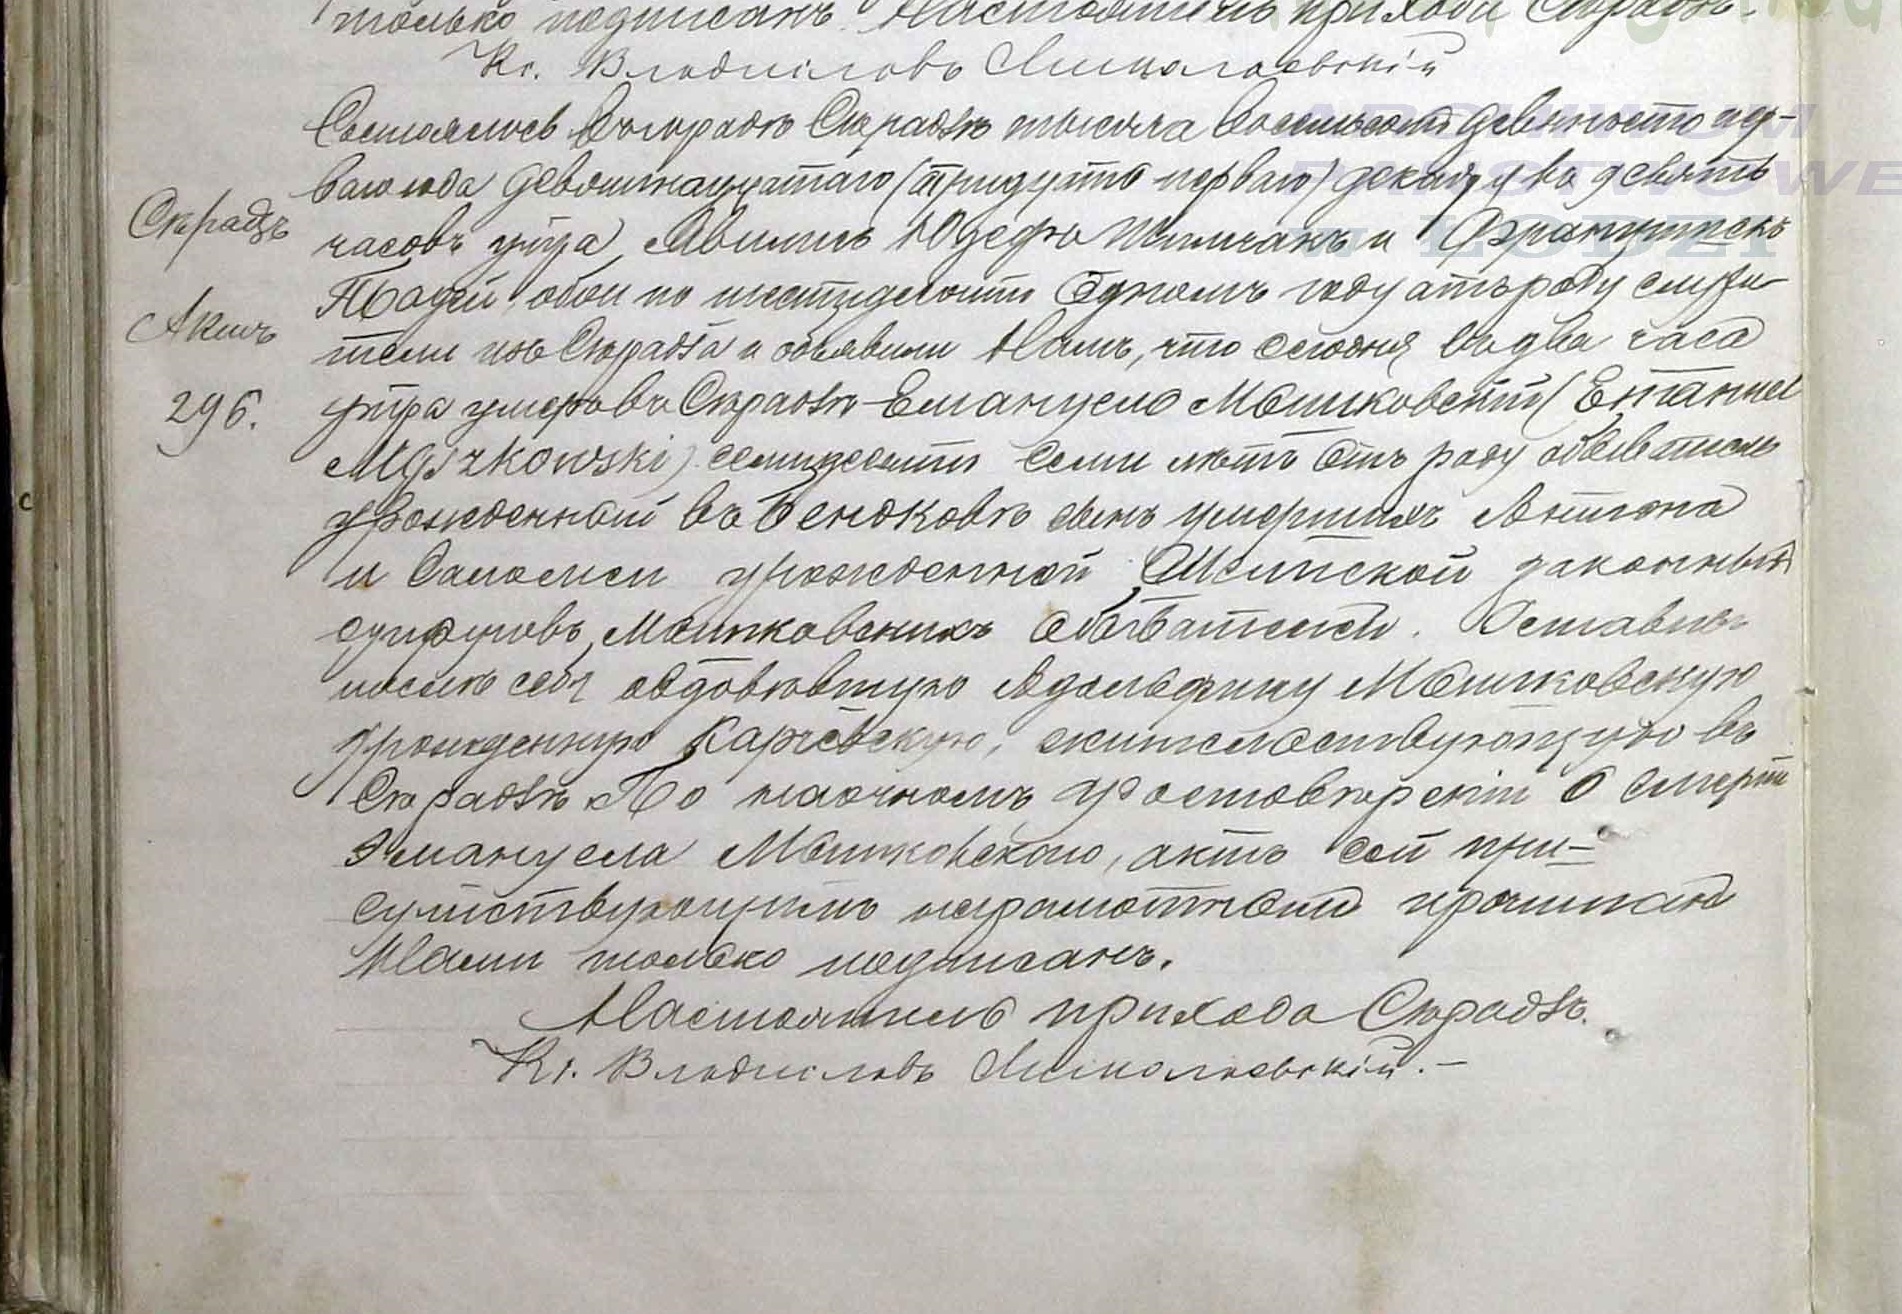 только подписанъ. Настоятель прихода Сѣрадзь.
Кс. Владиславъ
Состоялось въ городѣ Сѣрадзѣ тысяча восемьсотъ девяносто пер-
ваго года девятнадцатаго (тридцать перваго) декабря въ девять
часовъ утра. Явились Юзефъ и Францишекъ
обои по шестидесяти одному году отъ роду служи-
тели изъ Сѣрадза и объявили Намъ, что сегодня въ два часа
утра умеръ въ Сѣрадзѣ Емануелъ Мышковскій (Emanuel
Myszkowski) семидесяти семи лѣтъ отъ роду обыватель
урожденный въ Бендковѣ сынъ умершихъ Антона
и Саломеи урожденной законныхъ
супруговъ Мышковскихъ обывателей. Оставивъ
послѣ себя овдовѣвшую Адольфину Мышковскую
урожденную Карчевскую, жительствующую въ
Сѣрадзѣ. По наочномъ удостовѣреніи о смерти
Эмануела Мышковскаго, актъ сей при-
сутствующимъ неграмотнымъ прочитанъ
Нами только подписанъ.
Настоятель прихода Сѣрадзь.
Кс. Владиславъ
Сѣрадзь
Актъ
296.
ARCHIWUM
PAŃSTWOWE
W ŁODZI